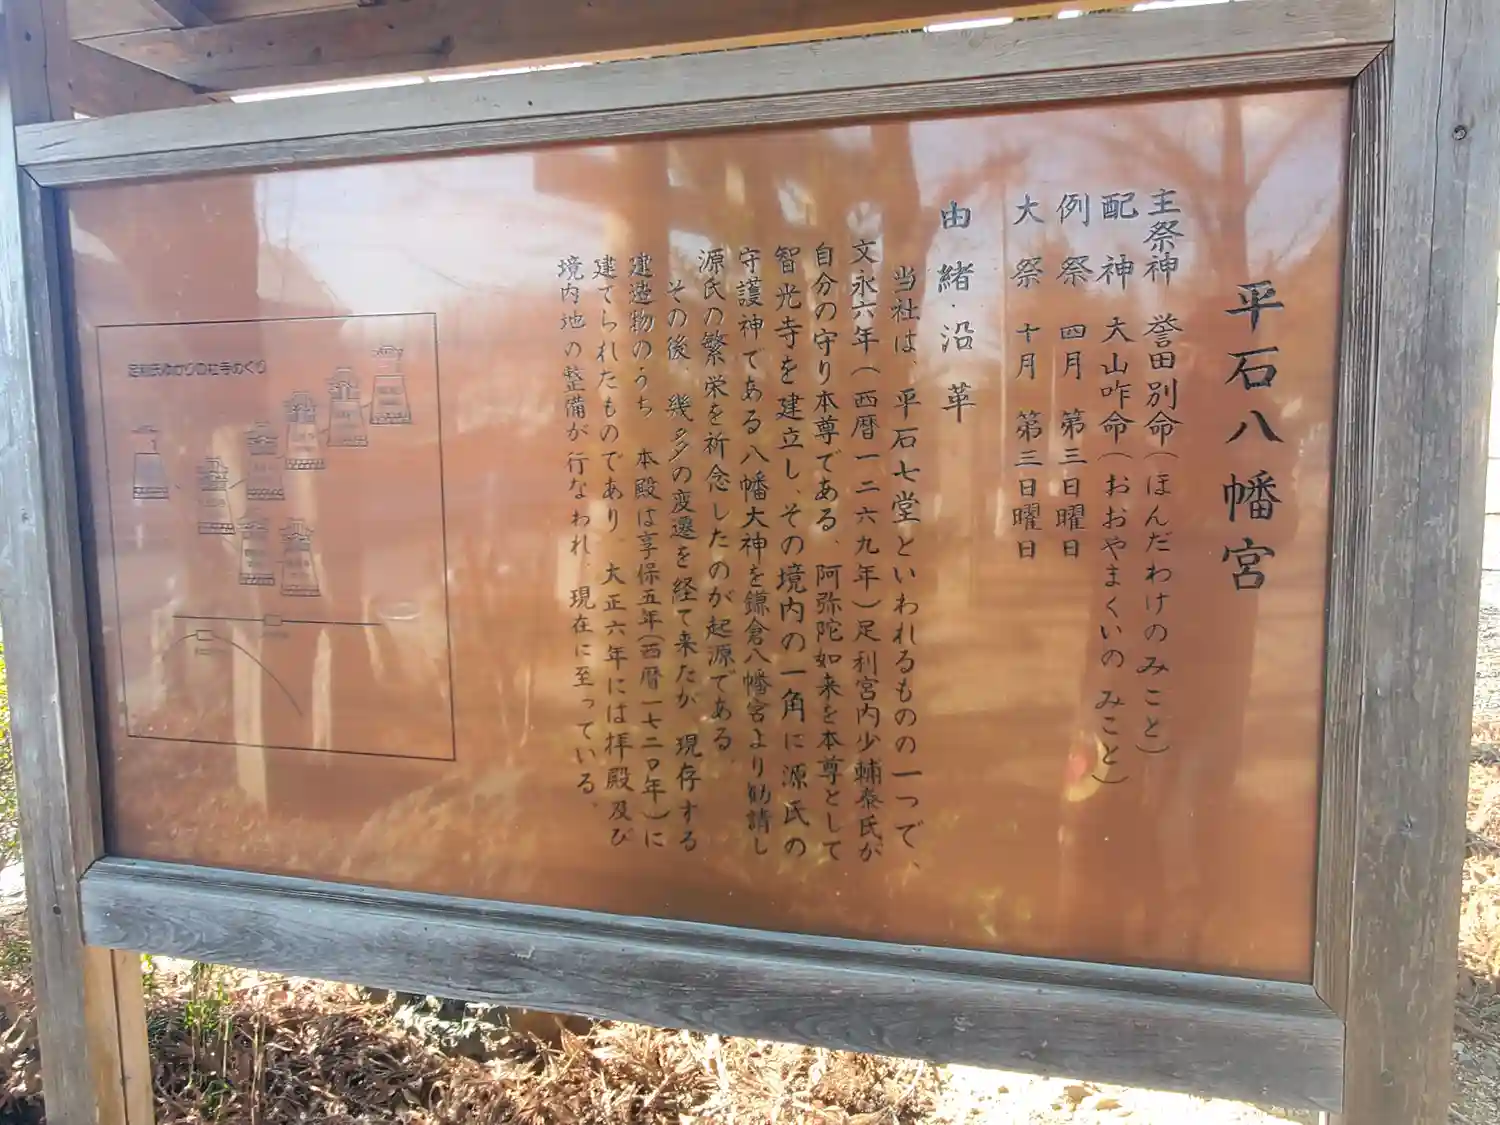 平石八幡宮
主祭神 誉田別命(ほんだわけのみこと)
配神 大山咋命(おおやまくいのみこと)
例祭 四月 第三日曜日
大祭 十月 第三日曜日
由緒・沿革
当社は、平石七堂といわれるものの一つで、
文永六年(西暦一二六九年)足利宮内少輔泰氏が
自分の守り本尊である、阿弥陀如来を本尊として
智光寺を建立し、その境内の一角に源氏の
守護神である八幡大神を鎌倉八幡宮より勧請し
源氏の繁栄を祈念したのが起源である。
その後、幾多の変遷を経て来たが、現存する
建造物のうち、本殿は享保五年(西暦一七二〇年)に
建てられたものであり、大正六年には拝殿及び
境内地の整備が行なわれ、現在に至っている。
足利氏ゆかりの社寺めぐり